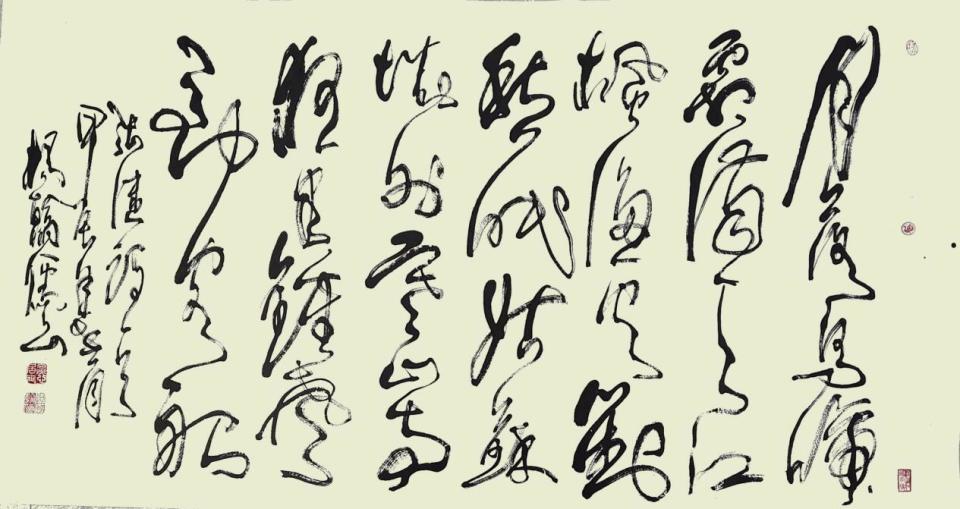 月落烏啼
霜滿天江
楓漁火對
愁眠姑蘇
城外寒山寺
夜半鐘聲
到客船
張継詩一首
甲辰年月